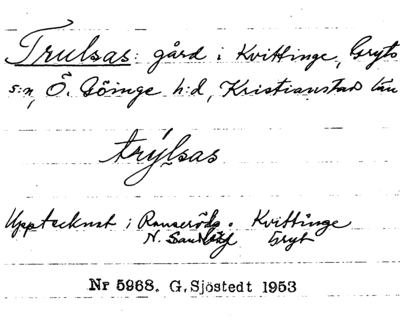 Trulsas: gård i Kvittinge, Gryts
s:n, Ö. Göinge h:d, Kristianstad län
trýlsas
Upptecknat i Ranseröds. Kvittinge
N. Sandby Gryt
Nr 5968. G. Sjöstedt 1953